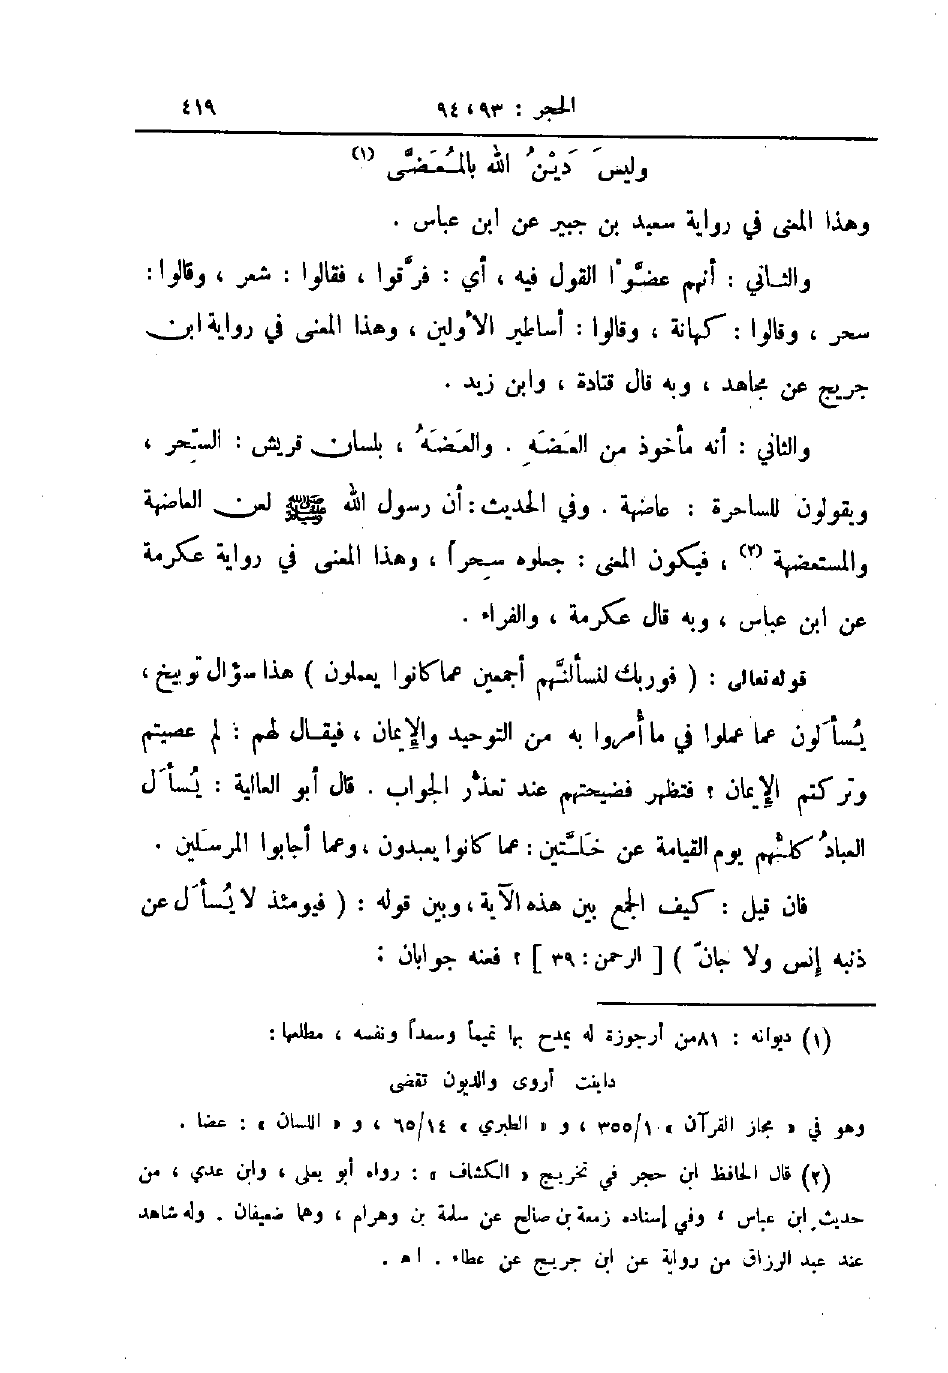 الحجر : ٩٣ ، ٩٤ ٤١٩
وليسَ دَيْنُ الله بالمُعَضَّى (١)
وهذا المعنى في رواية سعيد بن جبير عن ابن عباس .
والثـاني : أنهم عضَّوْا القول فيه ، أي : فرَّقوا ، فقالوا : شعر ، وقالوا :
سحر ، وقالوا : كهانة ، وقالوا : أساطير الأولين ، وهذا المعنى في رواية ابن
جريج عن مجاهد ، وبه قال قتادة ، وابن زيد .
والثاني : أنه مأخوذ من العَضَهِ . والعَضَهُ ، بلسان قريش : السِّحر ،
ويقولون للساحرة : عاضهة . وفي الحديث : أن رسول الله ﷺ لعن العاضهة
والمستعضهة (٢) ، فيكون المعنى : جعلوه سِحراً ، وهذا المعنى في رواية عكرمة
عن ابن عباس ، وبه قال عكرمة ، والفراء .
قوله تعالى : ( فوربك لنسألنَّهم أجمعين عما كانوا يعملون ) هذا سؤال توبيخ ،
يُسأَلون عما عملوا في ما أُمروا به من التوحيد والإيمان ، فيقـال لهم : لم عصيتم
وتركتم الإيمان ؟ فتظهر فضيحتهم عند تعذُّر الجواب . قال أبو العالية : يُسأَل
العبادُ كلُّهم يوم القيامة عن خَلَّتين : عما كانوا يعبدون ، وعما أجابوا المرسَلين .
فان قيل : كيف الجمع بين هذه الآية ، وبين قوله : ( فيومئذ لا يُسأَل عن
ذنبه إنس ولا جانّ ) [ الرحمن : ٣٩ ] ؟ فعنه جوابان :
(١) ديوانه : ٨١ من أرجوزة له يمدح بها تميماً وسعداً ونفسه ، مطلعها :
داينت أروى والديون تقضى
وهو في « مجاز القرآن » ٣٥٥/١ ، و « الطبري » ٦٥/١٤ ، و « اللسان » : عضا .
(٢) قال الحافظ ابن حجر في تخريج « الكشاف » : رواه أبو يعلى ، وابن عدي ، من
حديث ابن عباس ، وفي إسناده زمعة بن صالح عن سلمة بن وهرام ، وهما ضعيفان . وله شاهد
عند عبد الرزاق من رواية عن ابن جريج عن عطاء . اه .